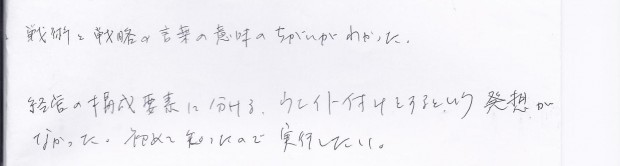 ・戦術と戦略の言葉の意味のちがいがわかった。
経営の構成要素に分ける、ウエイト付けをするという発想が
なかった。初めて知ったので実行したい。